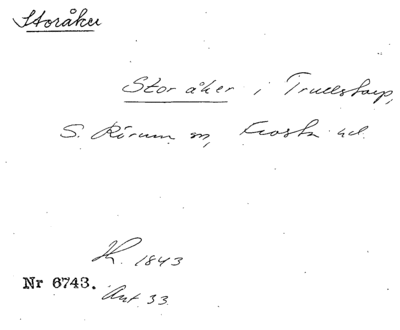 Storåker
Storåker i Trulstorp,
S. Rörum sn, Frosta hd.
H. 1843
Nr 6743.
Ant. 33.